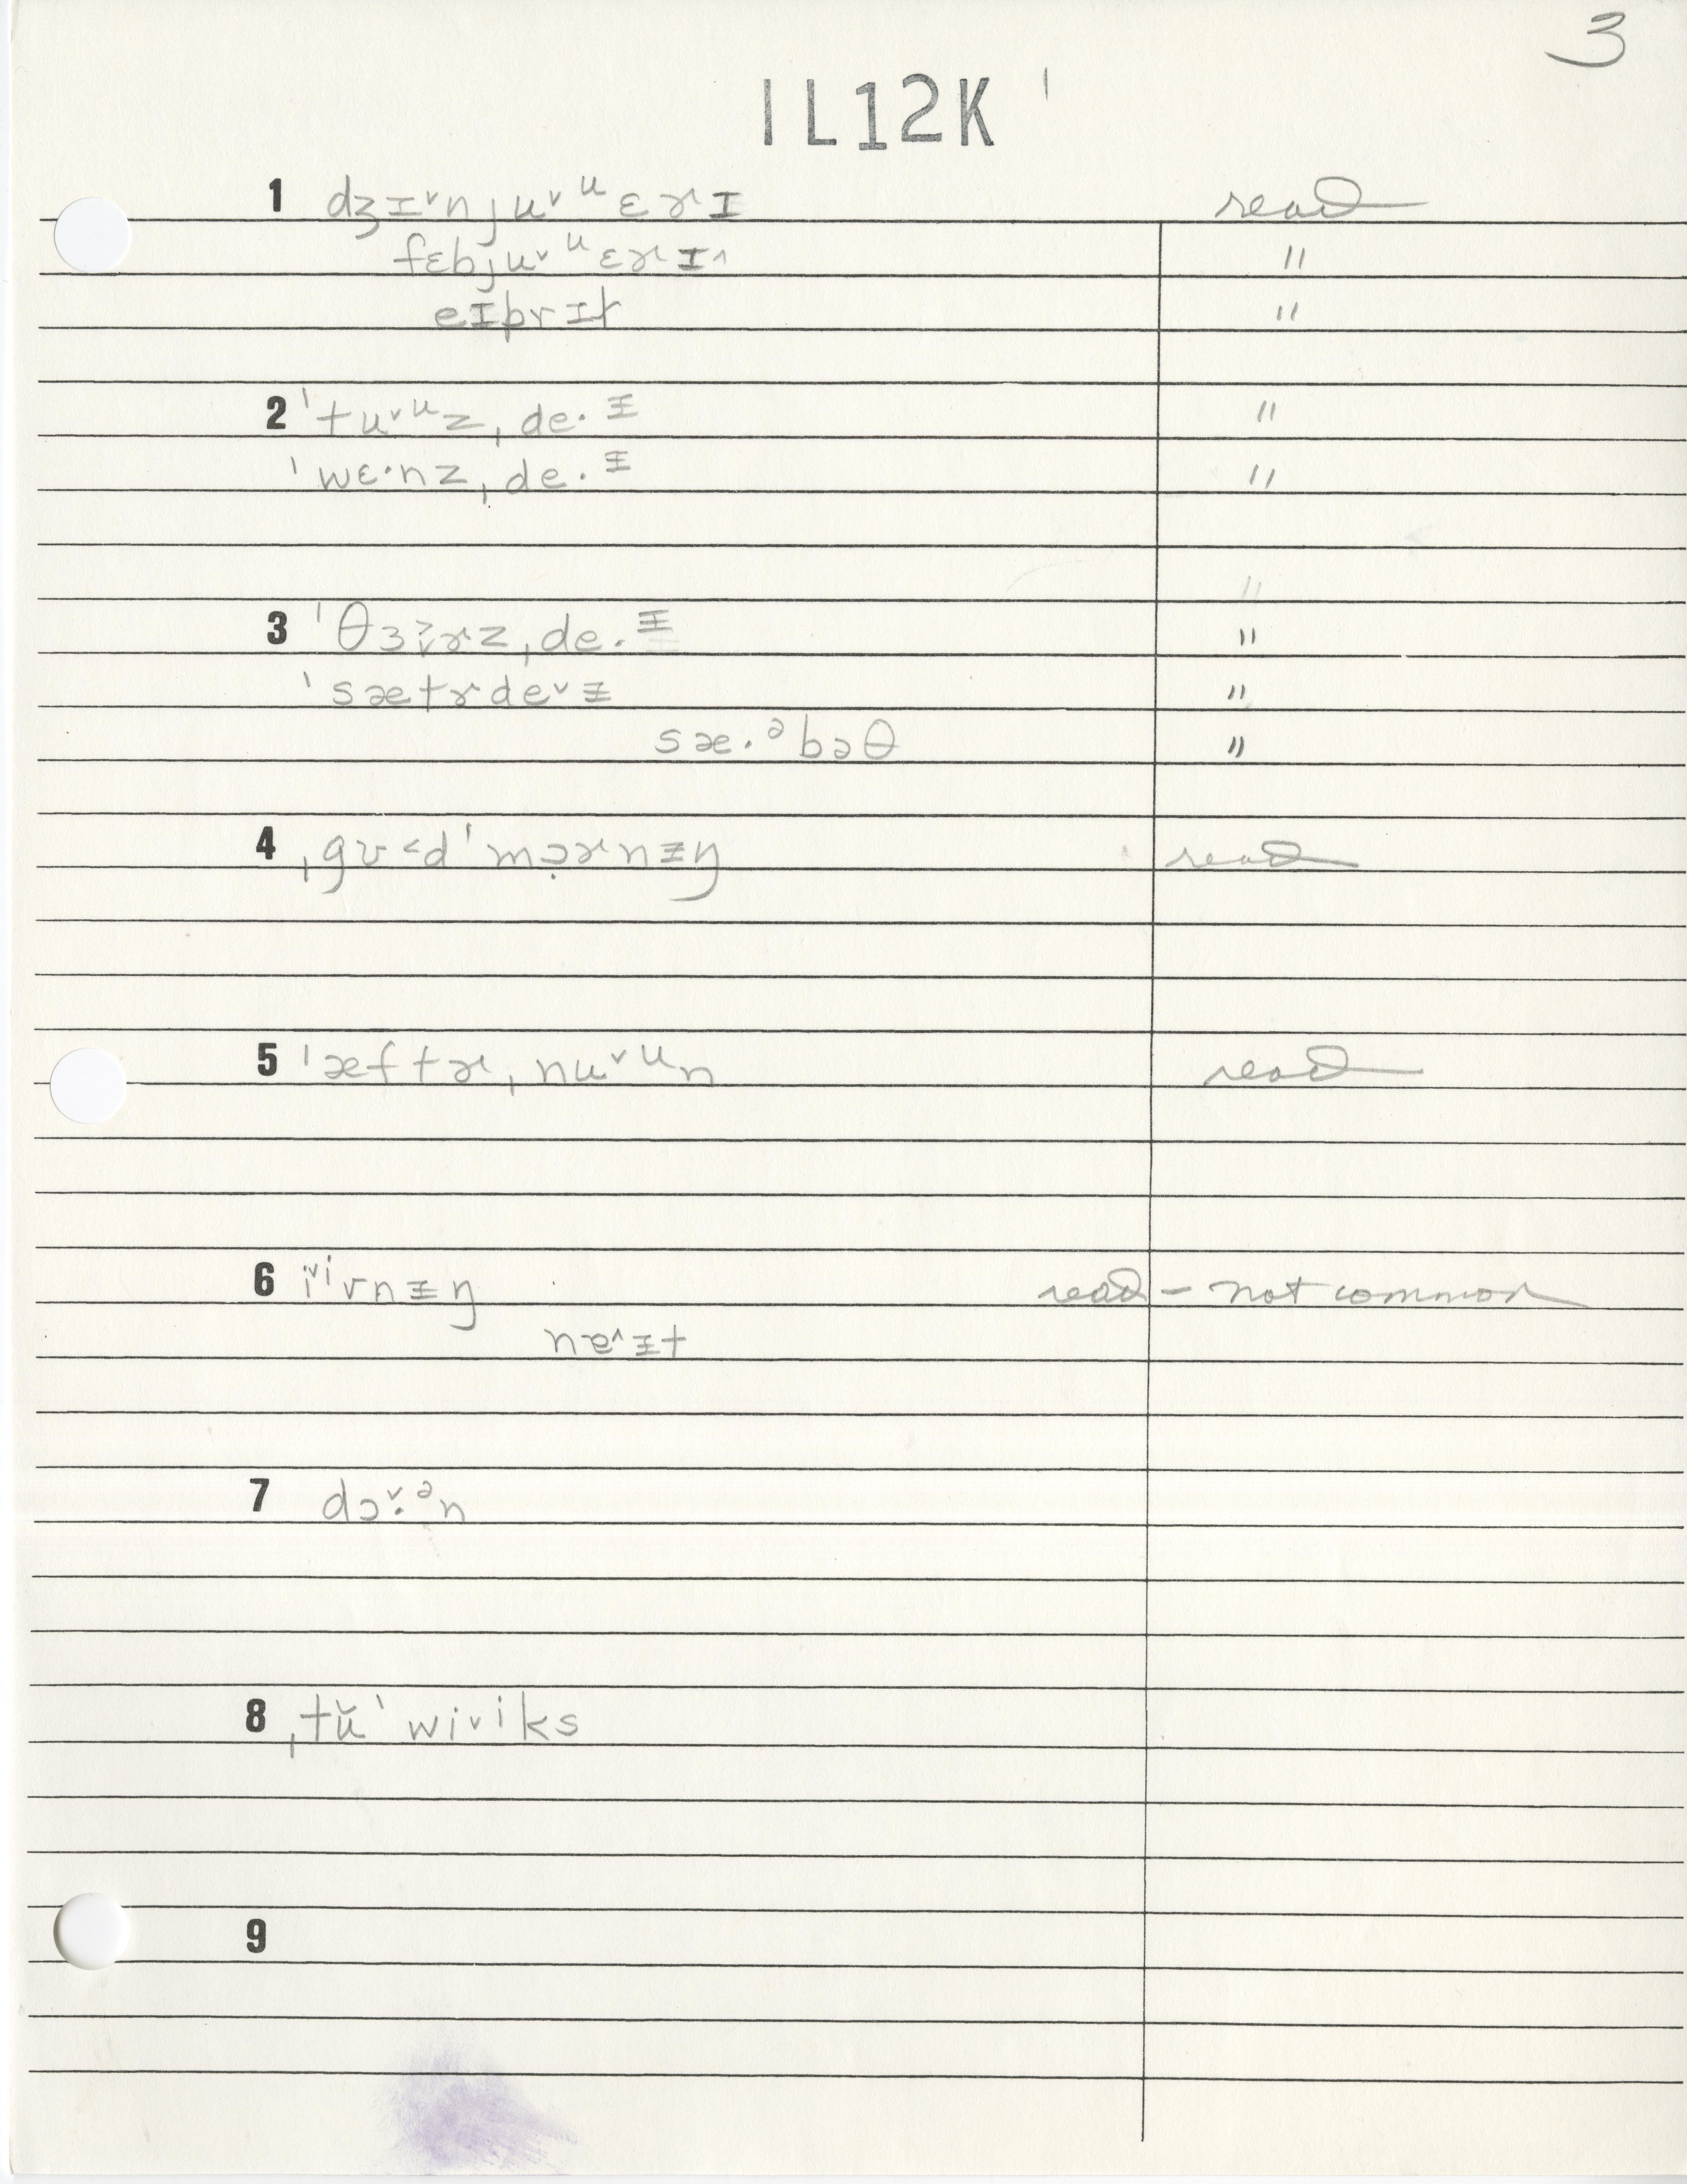 3
IL12K '
1 dʒɪ˅nju˅ᵘɛɚɪ read
fɛbju˅ᵘɛɚɪ^ "
eɪprɪɫ "
2 ˈtu˅ᵘzˌde·ᵻ "
ˈwɛ·nzˌde·ᵻ "
"
3 ˈθɜ˅˃ɚzˌde·ᵻ "
ˈsætɚde˅ᵻ "
sæ·ᵊbəθ "
4 ˌgʊ˂dˈmɔ̣ɚnᵻŋ read
5 ˈæftɚˌnu˅ᵘn read
6 i˅ⁱvnᵻŋ read - not common
naɪt
7 dɔ˅·ᵊn
8 ˌtŭˈwi˅ⁱks
9